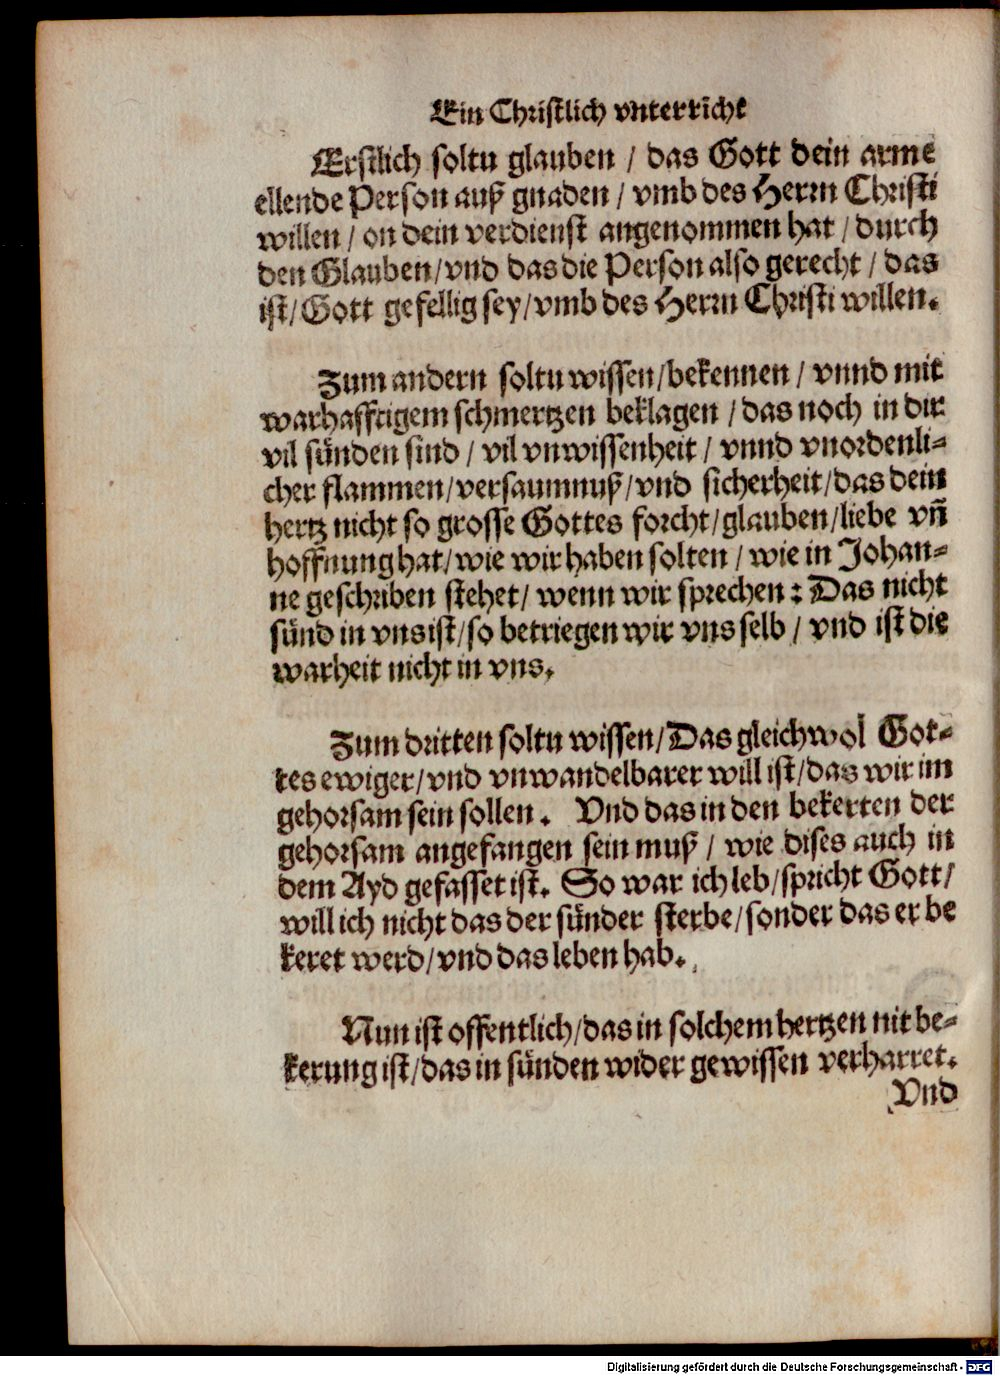 Ein Christlich vnterricht
Erstlich soltu glauben / das Gott dein arme
ellende Person auß gnaden / vmb des Herrn Christi
willen / on dein verdienst angenommen hat / durch
den Glauben/vnd das die Person also gerecht / das
ist/Gott gefellig sey/vmb des Herrn Christi willen.
Zum andern soltu wissen/bekennen / vnnd mit
warhafftigem schmertzen beklagen / das noch in dir
vil sünden sind / vil vnwissenheit / vnnd vnordenli-
cher flammen/versaumnuß/vnd sicherheit/das dein
hertz nicht so grosse Gottes forcht/glauben/liebe vñ
hoffnung hat/wie wir haben solten / wie in Johan-
ne geschriben stehet/ wenn wir sprechen: Das nicht
sünd in vns ist/so betriegen wir vns selb / vnd ist die
warheit nicht in vns.
Zum dritten soltu wissen/Das gleichwol Got-
tes ewiger/vnd vnwandelbarer will ist/das wir im
gehorsam sein sollen. Vnd das in den bekerten der
gehorsam angefangen sein muß / wie dises auch in
dem Ayd gefasset ist. So war ich leb/spricht Gott/
will ich nicht das der sünder sterbe/sonder das er be
keret werd/vnd das leben hab.
Nun ist offentlich/das in solchem hertzen nit be-
kerung ist/das in sünden wider gewissen verharret.
Vnd
Digitalisierung gefördert durch die Deutsche Forschungsgemeinschaft - DFG